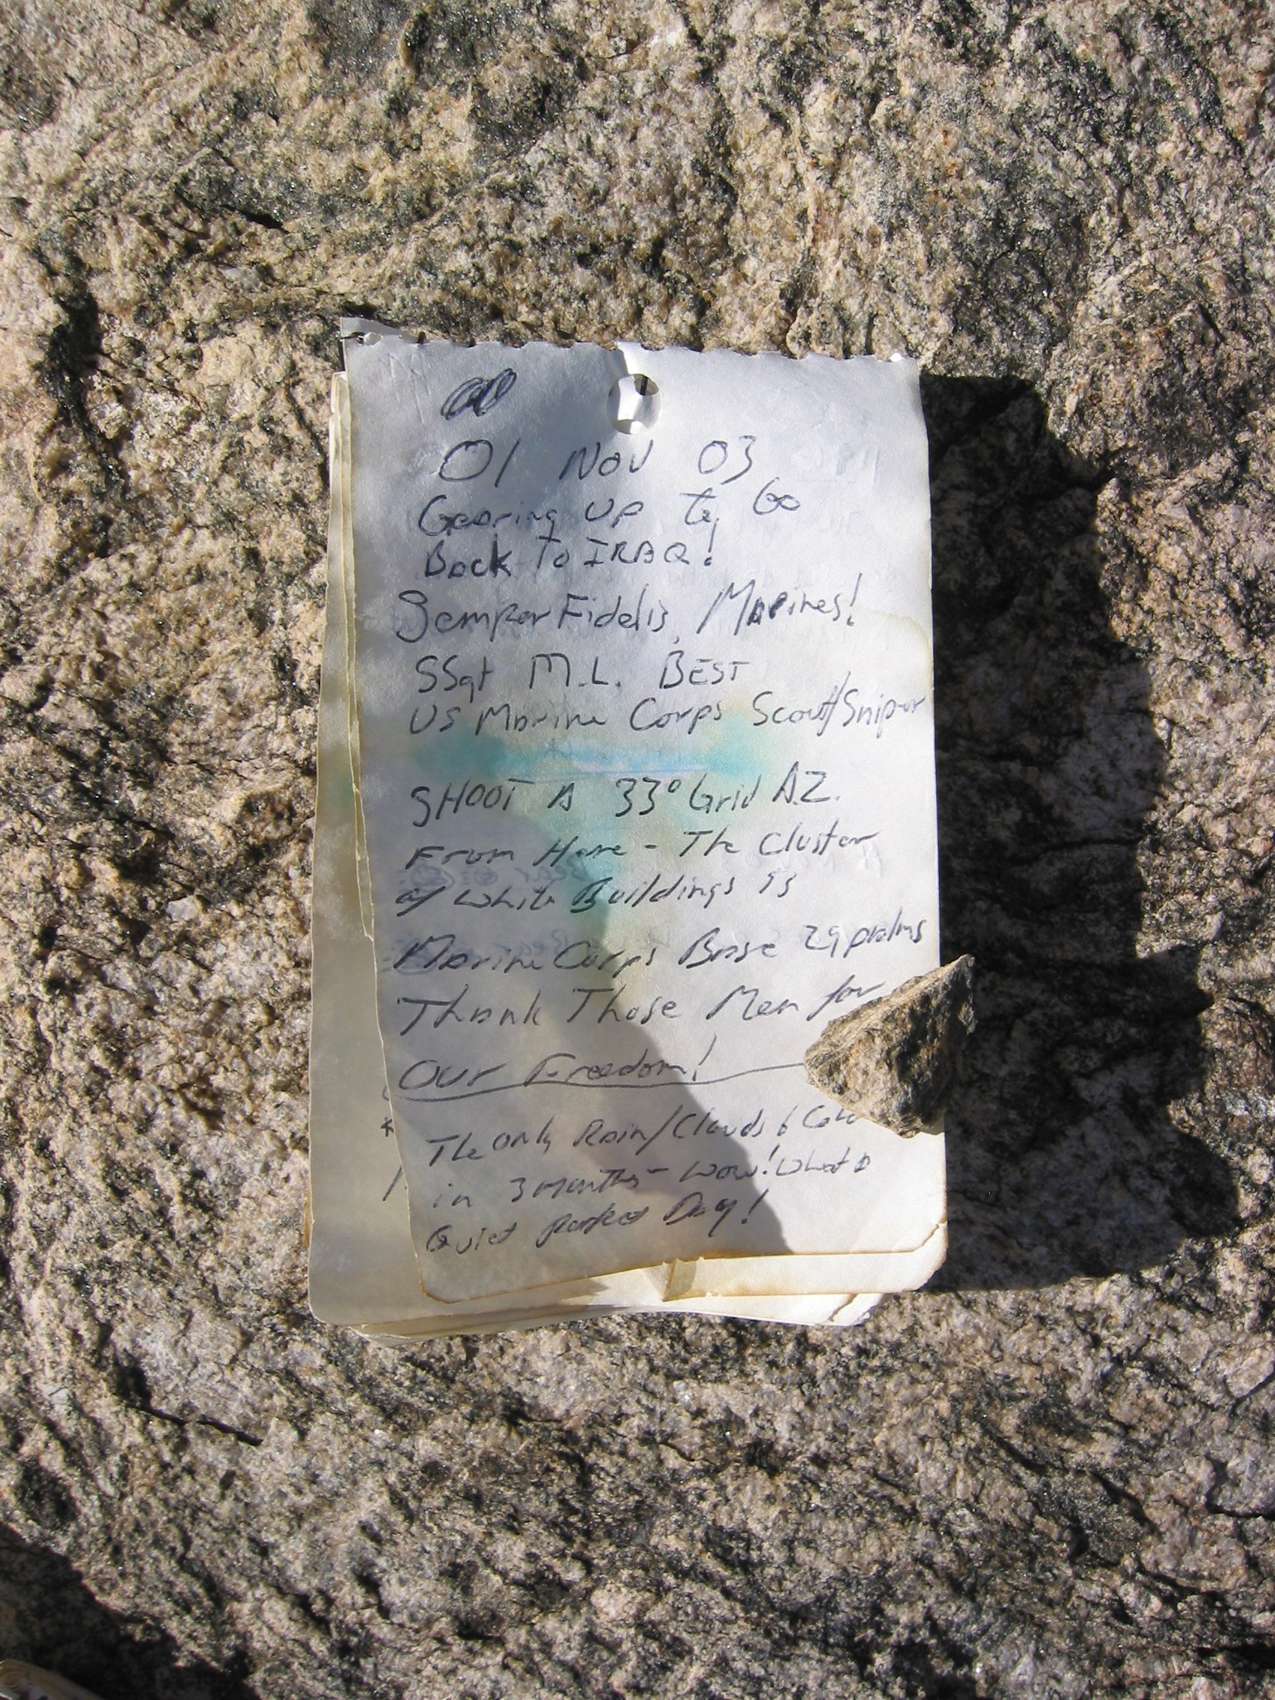 01 NOV 03
Gearing up to Go
Back to IRAQ!
Semper Fidelis, Marines!
SSgt M.L. BEST
US Marine Corps Scout/Sniper
SHOOT A 33° Grid AZ.
From Here - The Cluster
of White Buildings is
Marine Corps Base 29 palms
Thank Those Men for
Our Freedom!
The only Rain/Clouds & Cold
in 3 months - wow! What a
Quiet perfect Day!